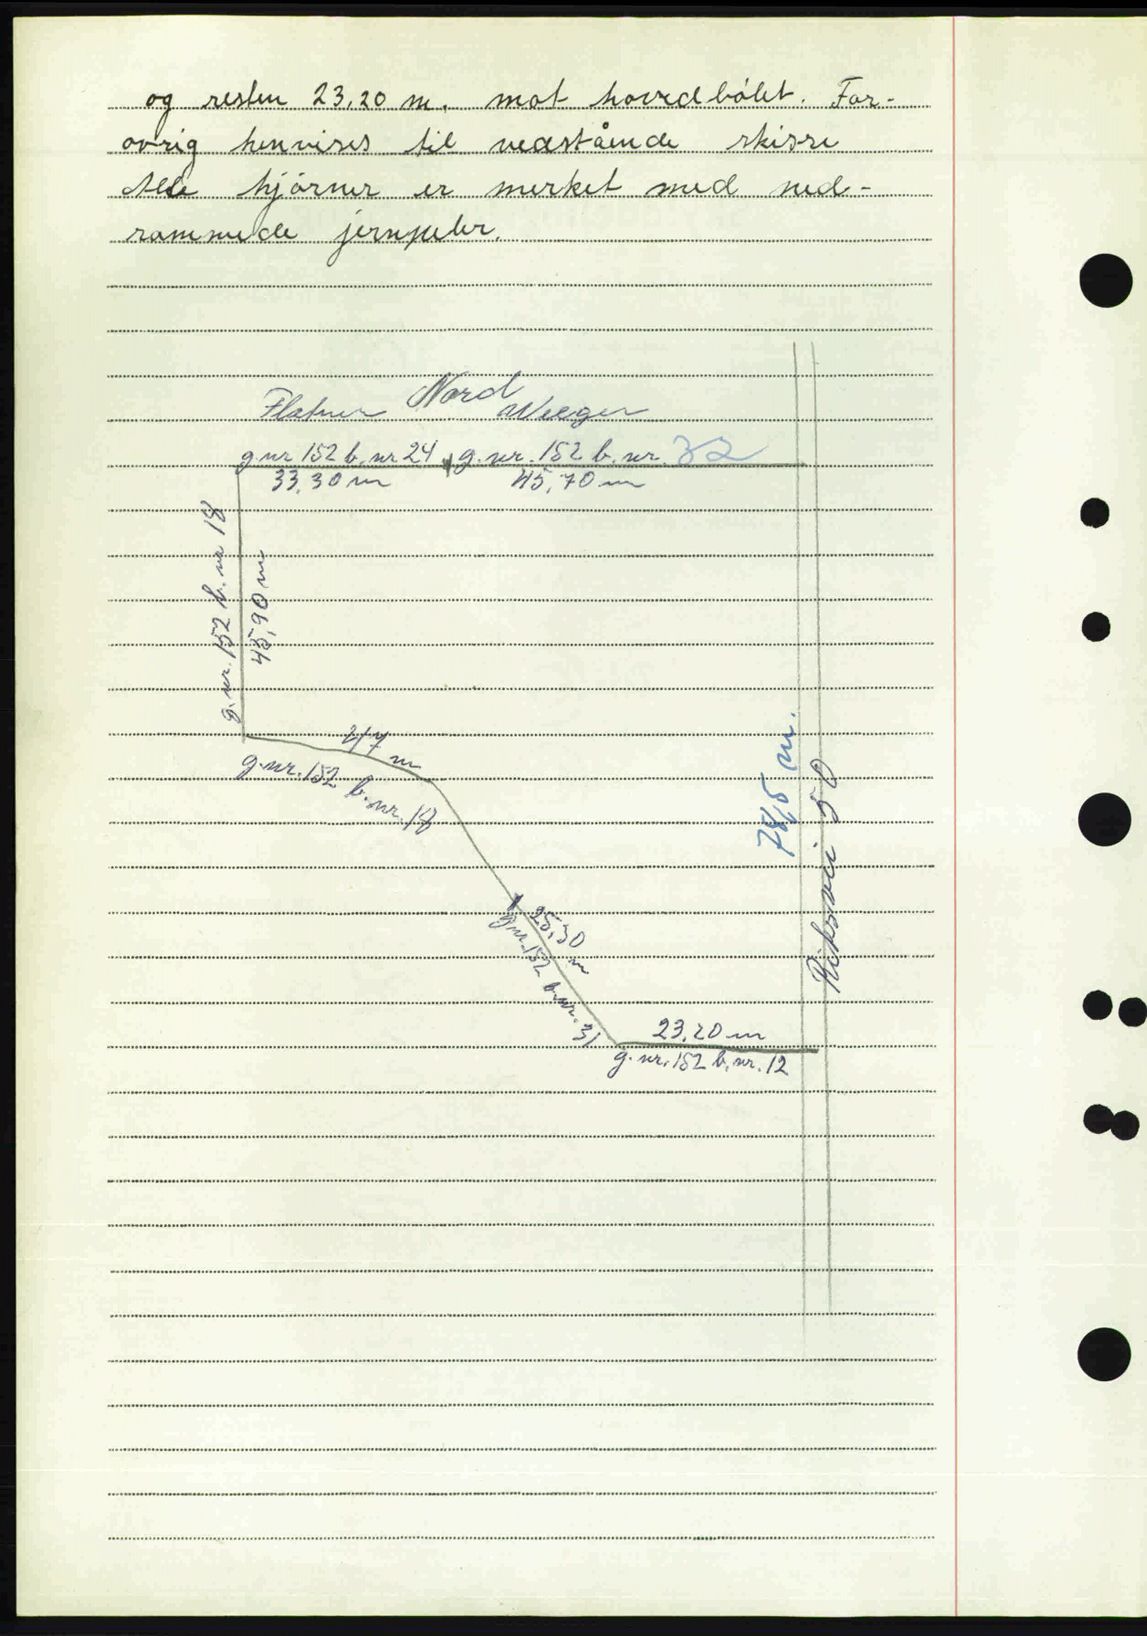 og resten 23,20 m. mot hovedbölet. For-
övrig henvises til nedstående skisse
Alle hjörner er merket med ned-
rammede jernpeler.
Nord
Flatner
g nr 152 b. nr 24 g. nr. 152 b. nr. 32
33,30 m 45,70 m
g. nr. 152 b. nr 18
45,90 m
47 m
g. nr. 152 b. nr. 18
78,5 m.
Riksvei 50
25,30 m
g nr. 152 b. nr. 31
23,20 m
g. nr. 152 b. nr. 12